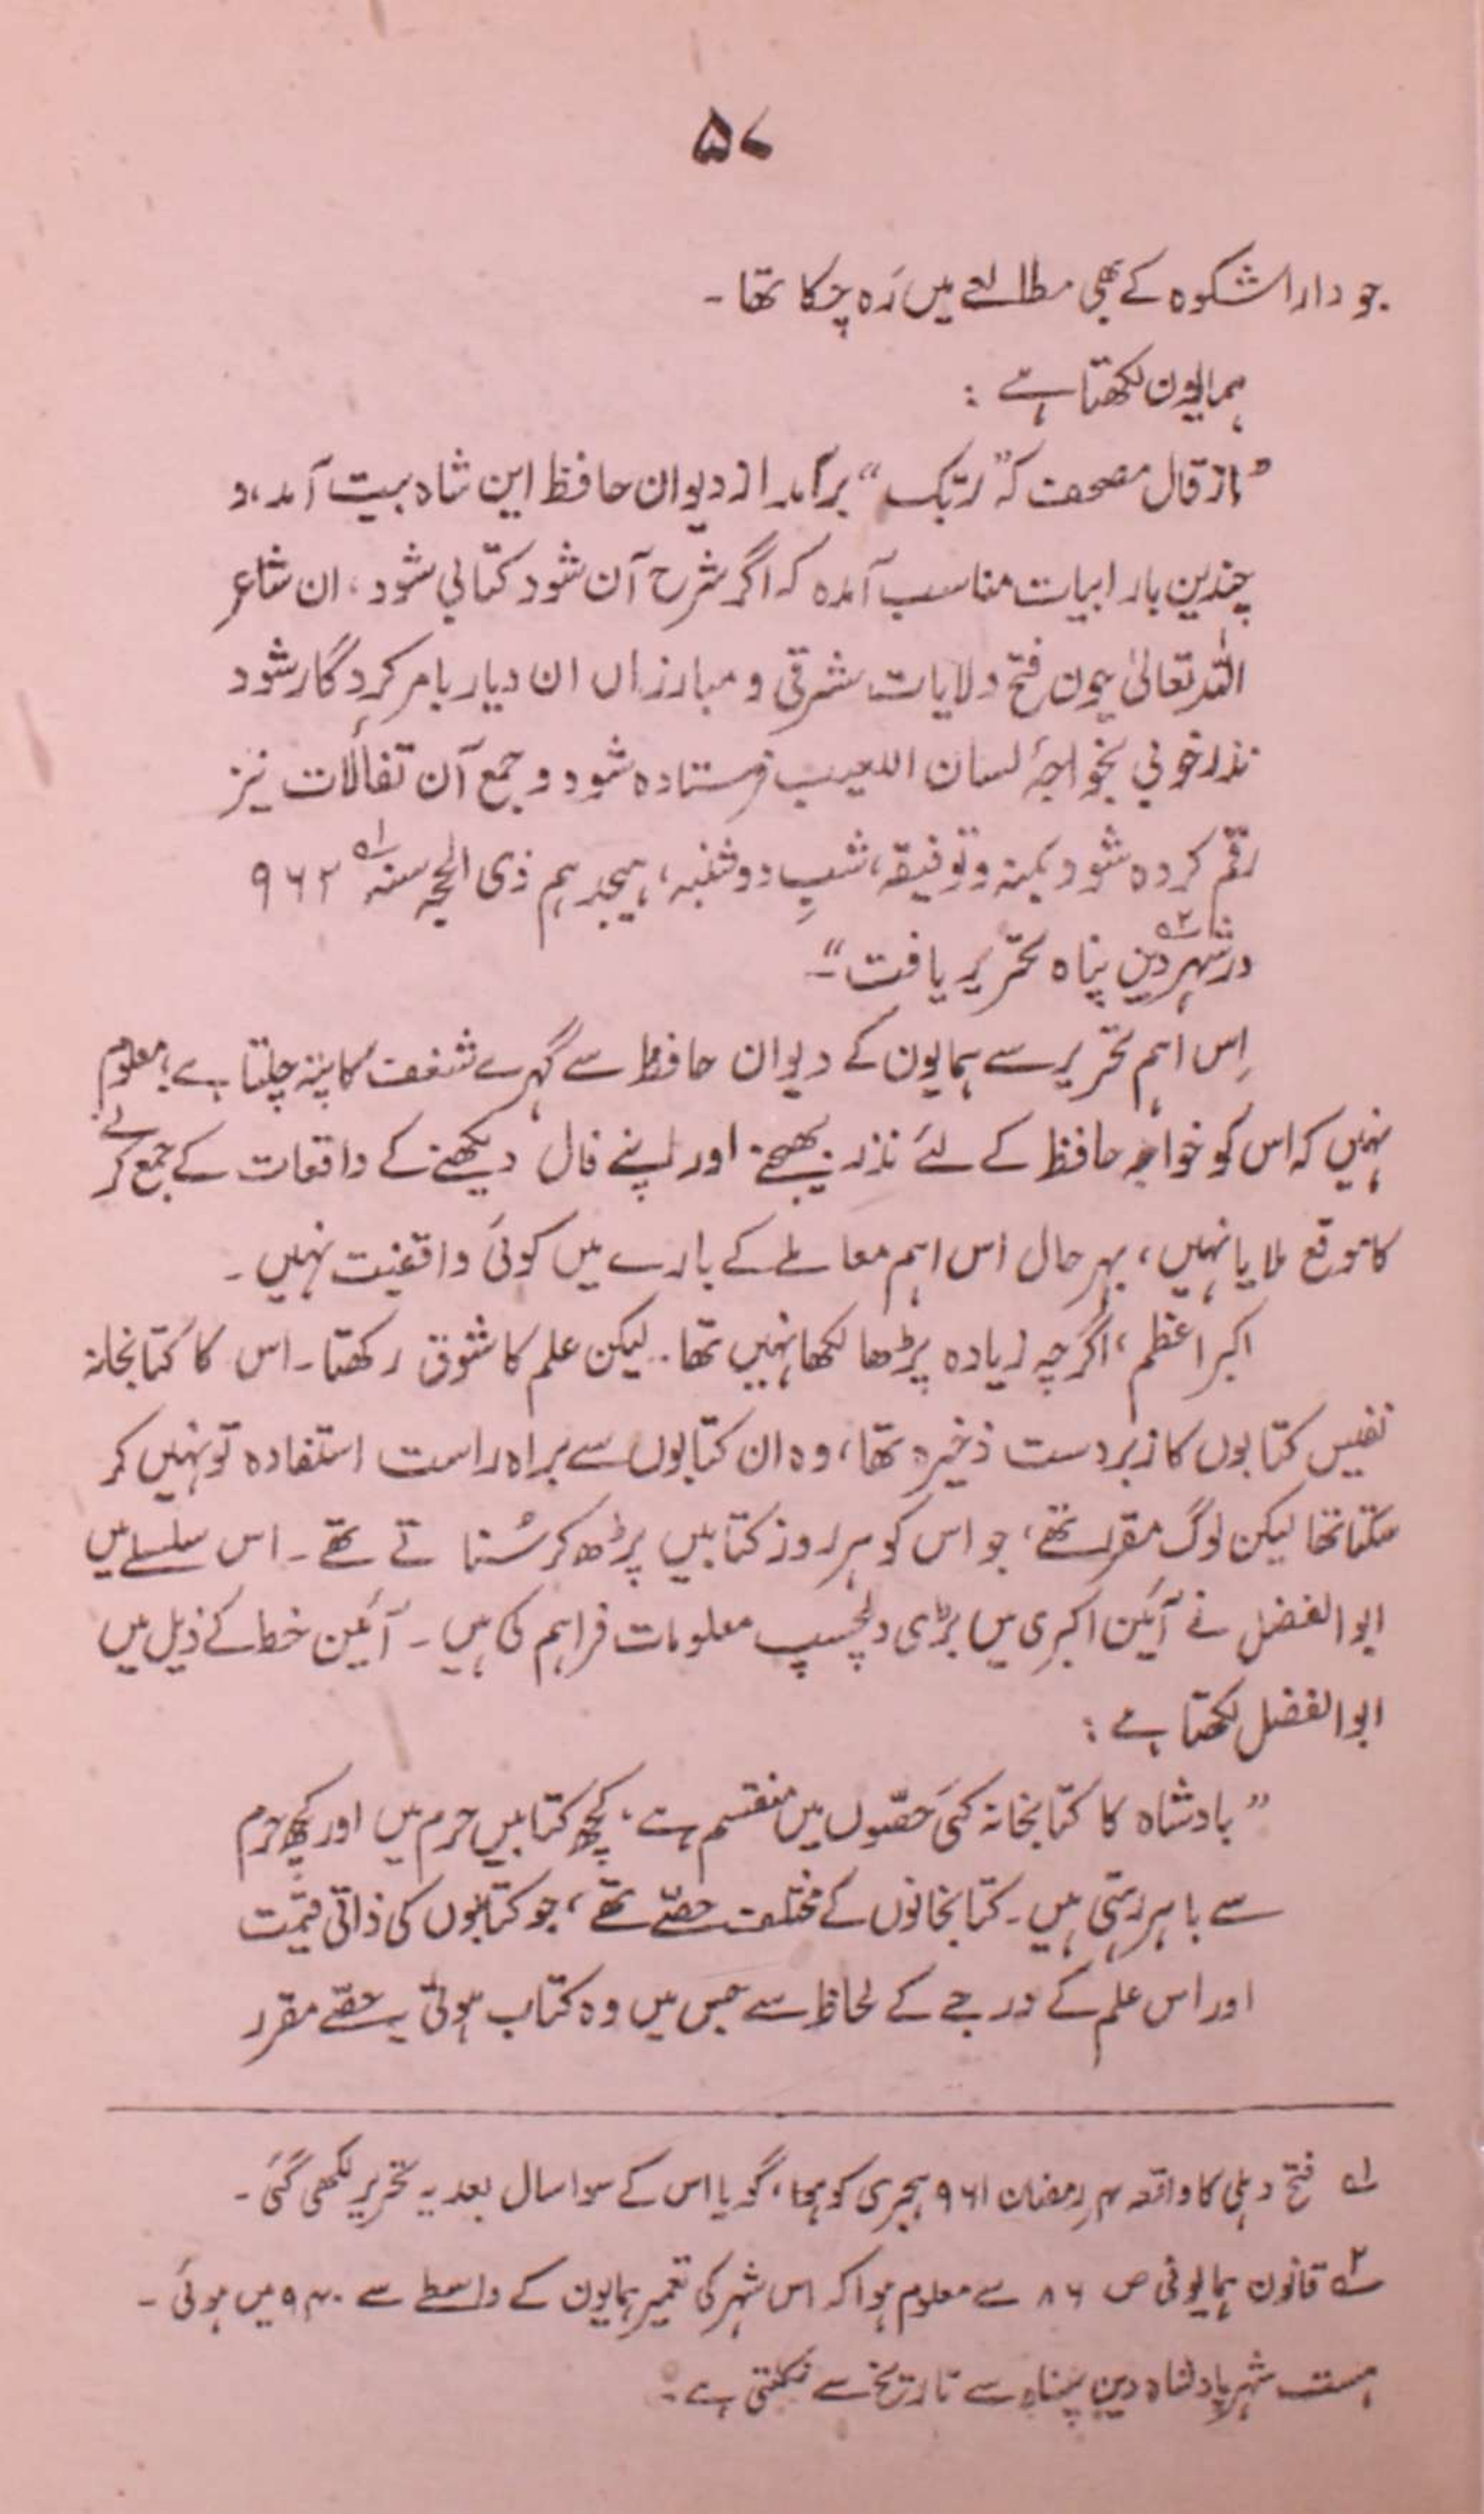 ۵۷
جو داراشکوہ کے بھی مطالعے میں رَہ چکا تھا ۔
ہمایون لکھتا ہے :
”از قال مصحف کہ ”ربّک“ برآمد از دیوان حافظ این شاہ بیت آمد، و
چندین بار ابیات مناسب آمدہ کہ اگر شرح آن شود کتابی شود ، ان شاءِ
اللہ تعالیٰ چون فتح ولایات شرقی و مبارزاں ان دیار بامر کردگار شود
نذر خوبی بخواجۂ لسان الغیب فرستادہ شود و جمع آن تفألات نیز
رقم کردہ شود بمنہ و توفیقہ، شبِ دوشنبہ، ہیجدہم ذی الحجہ سنہ ۹۶۲ ؎۱
در شہر دین پناہ ؎۲ تحریر یافت“۔
اِس اہم تحریر سے ہمایون کے دیوان حافظ سے گہرے شغف کا پتہ چلتا ہے؛ معلوم
نہیں کہ اس کو خواجہ حافظ کے لئے نذر بھیجنے اور اپنے فال دیکھنے کے واقعات کے جمع کرنے
کا موقع ملا یا نہیں، بہر حال اس اہم معاملے کے بارے میں کوئی واقفیت نہیں ۔
اکبر اعظم، اگرچہ زیادہ پڑھا لکھا نہیں تھا۔ لیکن علم کا شوق رکھتا۔ اس کا کتابخانہ
نفیس کتابوں کا زبردست ذخیرہ تھا، وہ ان کتابوں سے براہ راست استفادہ تو نہیں کر
سکتا تھا لیکن لوگ مقرر تھے، جو اس کو ہر روز کتابیں پڑھ کر سُنا تے تھے ۔ اس سلسلے میں
ابوالفضل نے آئین اکبری میں بڑی دلچسپ معلومات فراہم کی ہیں ۔ آئین خط کے ذیل میں
ابوالفضل لکھتا ہے :
”بادشاہ کا کتابخانہ کئی حصّوں میں منقسم ہے، کچھ کتابیں حرم میں اور کچھ حرم
سے باہر رہتی ہیں ۔ کتابخانوں کے مختلف حصّے تھے، جو کتابوں کی ذاتی قیمت
اور اس علم کے درجے کے لحاظ سے جس میں وہ کتاب ہوتی یہ حصّے مقرر
؎۱ فتح دہلی کا واقعہ ۴ رمضان ۹۶۱ ہجری کو ہوا، گویا اس کے سوا سال بعد یہ تحریر لکھی گئی ۔
؎۲ قانون ہمایونی ص ۸۶ سے معلوم ہوا کہ اس شہر کی تعمیر ہمایون کے واسطے سے ۹۴۰ میں ہوئی ۔
شہر بادشاہ دین پناہ سے تاریخ سے نکلتی ہے ۔